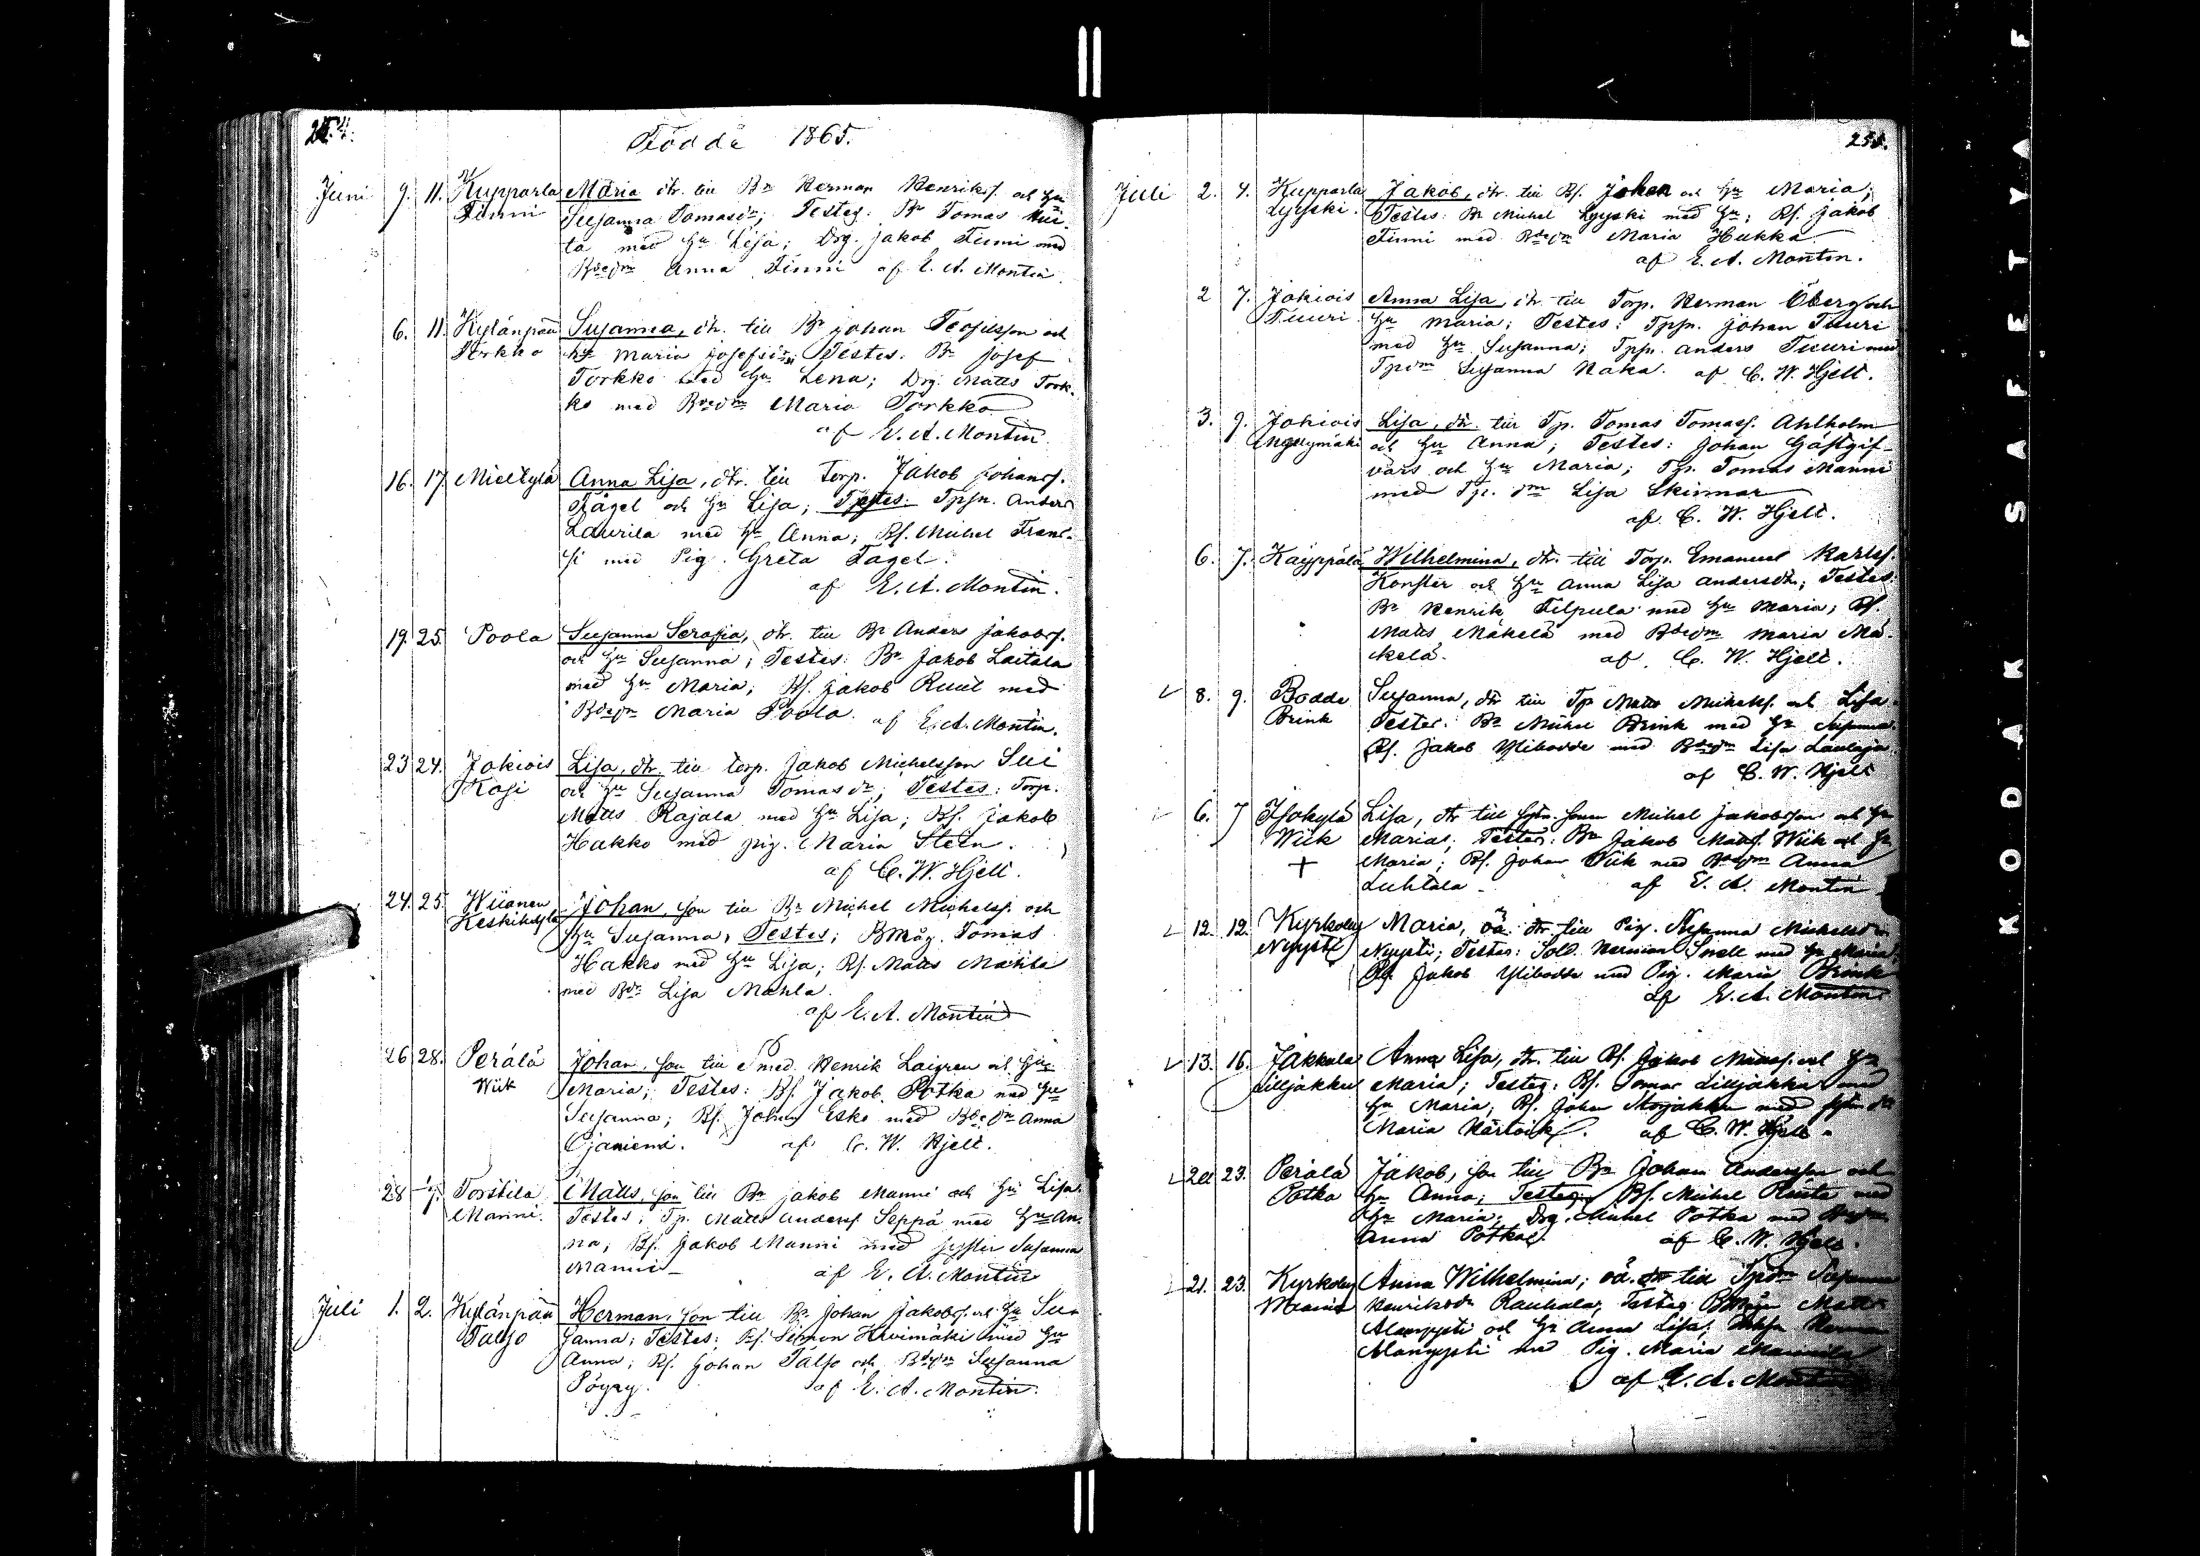 254.
Födde 1865.
Juni 9. 11. Kupparla Maria dtr. till Br Herman Henrikss. och hu
Finni Susanna Tomasdr; Testes: Br Tomas
ta med hu Lisa; Drg. Jakob Finni med
Bdedm Anna Finni af E. A. Montin
6. 11. Kylänpää Susanna, dtr. till Br Johan Josefsson och
Torkko hu Maria Josefsdr; Testes: Br Josef
Torkko med hu Lena; Drg. Matts Tork-
ko med Bdedm Maria Torkko
af E. A. Montin
16. 17. Mielkylä Anna Lisa, dtr. till Torp. Jakob Johanss.
Fågel och hu Lisa; Testes: Tpsn. Anders
Laurila med hu Anna; Bs. Michel Frans-
si med Pig. Greta Fågel.
af E. A. Montin.
19. 25. Poola Susanna Serafia, dtr. till Br Anders Jakobss.
och hu Susanna; Testes: Br Jakob Laitala
med hu Maria; Bs. Jakob Ruut med
Bdedm Maria Poola. af E. A. Montin.
23 24. Jokiois Lisa, dtr. till torp. Jakob Michelsson Sui
Kasi och hu Susanna Tomasdr; Testes: Torp.
Matts Rajala med hu Lisa; Bs. Jakob
Hakko med pig. Maria Sten.
af C. W. Hjelt.
24. 25. Wiianen Johan, son till Br Michel Michelss. och
Keskikylä hu Susanna; Testes; Bmåg. Tomas
Hakko med hu Lisa; Bs. Matts Mahla
med Bdr Lisa Mahla.
af E. A. Montin
26 28. Perälä Johan, son till Smed. Henrik Laigren och hu
Wiik Maria; Testes: Bs. Jakob Potka med hu
Susanna; Bs. Johan Esko med Bdedr Anna
Ojaniemi. af C. W. Hjelt.
28 1/7. Torstila Matts, son till Br Jakob Manni och hu Lisa.
Manni. Testes; Tp. Matts Anderss. Seppä med hu An-
na; Bs. Jakob Manni med syster Susanna
Manni af E. A. Montin
Juli 1. 2. Kylänpää Herman, son till Br Johan Jakobss. och hu Su-
Talso sanna; Testes; Bs. Simon Hirvimäki med hu
Anna; Bs. Johan Talso och Bdedm Susanna
Pöyry. af E. A. Montin.
255.
Juli 2. 4. Kupparla Jakob, dtr. till Bs. Johan och hu Maria;
Lyyski. Testes: Br Michel Lyyski med hu; Bs. Jakob
Finni med Bdedm Maria Hukka
af E. A. Montin.
2 7. Jokiois Anna Lisa, dtr till Torp. Herman Öberg och
Tuuri hu Maria; Testes: Tpsn. Johan Tuuri
med hu Susanna; Tpsn. Anders Tuuri med
Tpdm Susanna Haka. af C. W. Hjelt.
3. 9. Jokiois Lisa, dtr. till Tp. Tomas Tomass. Ahlholm
och hu Anna; Testes: Johan Gästgif-
vars och hu Maria; Tp. Tomas Manni
med Tp. dm Lisa Skinnar
af C. W. Hjelt.
6. 7. Käyppälä Wilhelmina, dtr. till Torp. Emanuel Karlss.
Konster och hu Anna Lisa Andersdr; Testes:
Br Henrik Filpula med hu Maria; Bs.
Matts Mäkelä med Bdedm Maria Mä-
kelä. af C. W. Hjelt.
8. 9. Bodde Susanna, dtr till Tp Matts Michelss. och Lisa.
Brink Testes: Br Michel Brink med hu Susanna.
Bs. Jakob Ylibodde med Bdedm Lisa
af C. W. Hjelt
6. 7 Isokylä Lisa, dtr till Michel Jakobsson och hu
Wiik Maria; Testes: Br Jakob Matss. Wiik och hu
+ Maria; Bs. Johan Wiik med Bdedm Anna
Luhtala af E. A. Montin
12. 12. Kyrkoby Maria, oä. dtr till Pig. Susanna Michelsdr
Nyysti Nyysti; Testes: Sold. Herman Snell med hu Maria,
Bs. Jakob Ylibodde med Pig. Maria Brink
af E. A. Montin
13. 16. Jakkula Anna Lisa, dtr. till Bs. Jakob Matss. och hu
Lilljakku Maria; Testes: Bs. Tomas Lilljakku med
hu Maria; Bs. Johan med
Maria af C. W. Hjelt.
22 23. Perälä Jakob, son till Br Johan Andersson och
Potka hu Anna; Testes; Bs. Michel med
hu Maria; Drg. Michel Potka med
Anna Potka. af C. W. Hjelt.
21. 23. Kyrkoby Anna Wilhelmina; oä. dtr till Tpdr Susanna
Henriksdr Rauhala; Testes Matts
Alanyysti och hu Anna Lisa; Herman
Alanyysti med Pig. Maria Mannila
af E. A. Montin
KODAK SAFETY A F